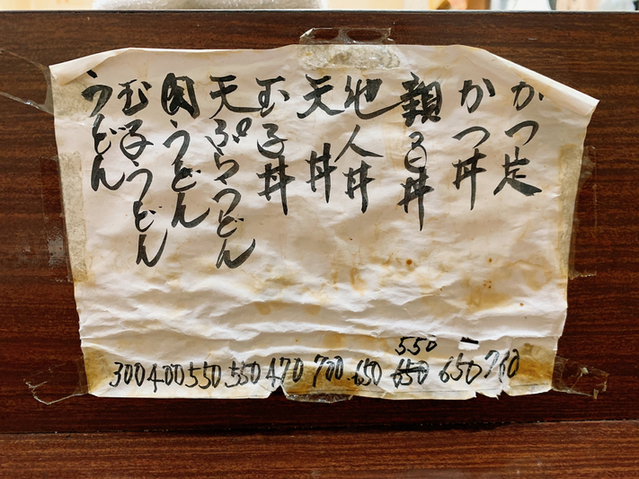 かつ定
かつ丼
親子丼
他人丼
天丼
玉子丼
天ぷらうどん
肉うどん
玉子うどん
うどん
550
300 400 550 550 470 700 650 650 650 760